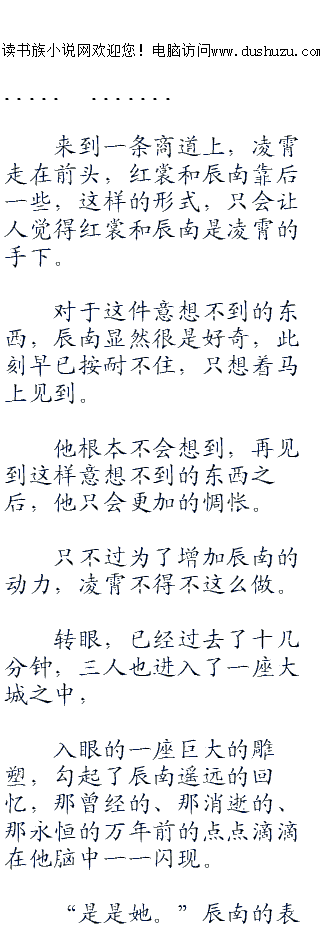 读书族小说网欢迎您！电脑访问www.dushuzu.com
..... .......
来到一条商道上，凌霄
走在前头，红裳和辰南靠后
一些，这样的形式，只会让
人觉得红裳和辰南是凌霄的
手下。
对于这件意想不到的东
西，辰南显然很是好奇，此
刻早已按耐不住，只想着马
上见到。
他根本不会想到，再见
到这样意想不到的东西之
后，他只会更加的惆怅。
只不过为了增加辰南的
动力，凌霄不得不这么做。
转眼，已经过去了十几
分钟，三人也进入了一座大
城之中，
入眼的一座巨大的雕
塑，勾起了辰南遥远的回
忆，那曾经的、那消逝的、
那永恒的万年前的点点滴滴
在他脑中一一闪现。
“是是她。”辰南的表